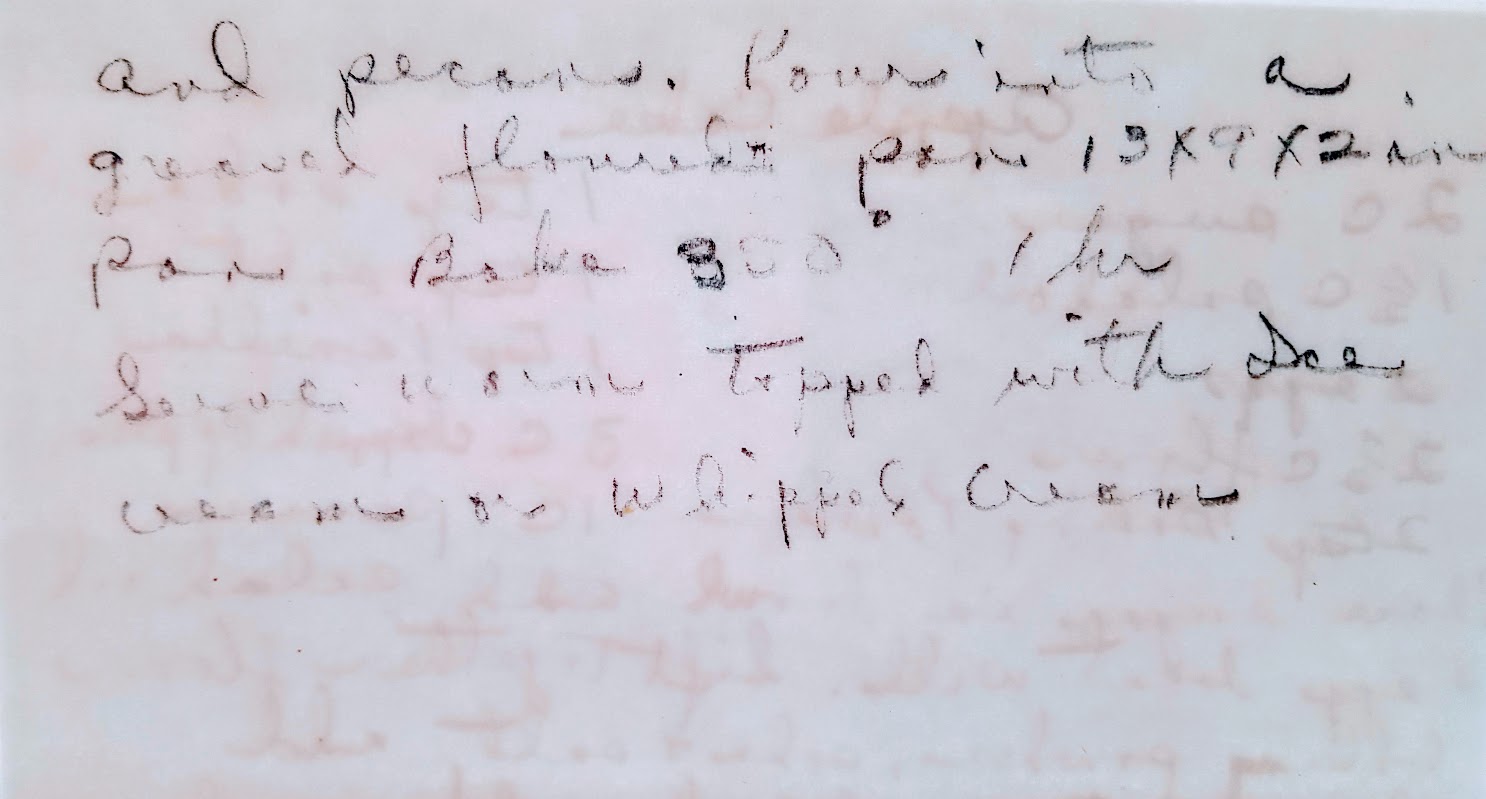 and pecans. Pour into a
greased floured pan 13X9X2 in
pan Bake 300° 1 hr
Serve warm topped with Ice
cream or Whipped Cream